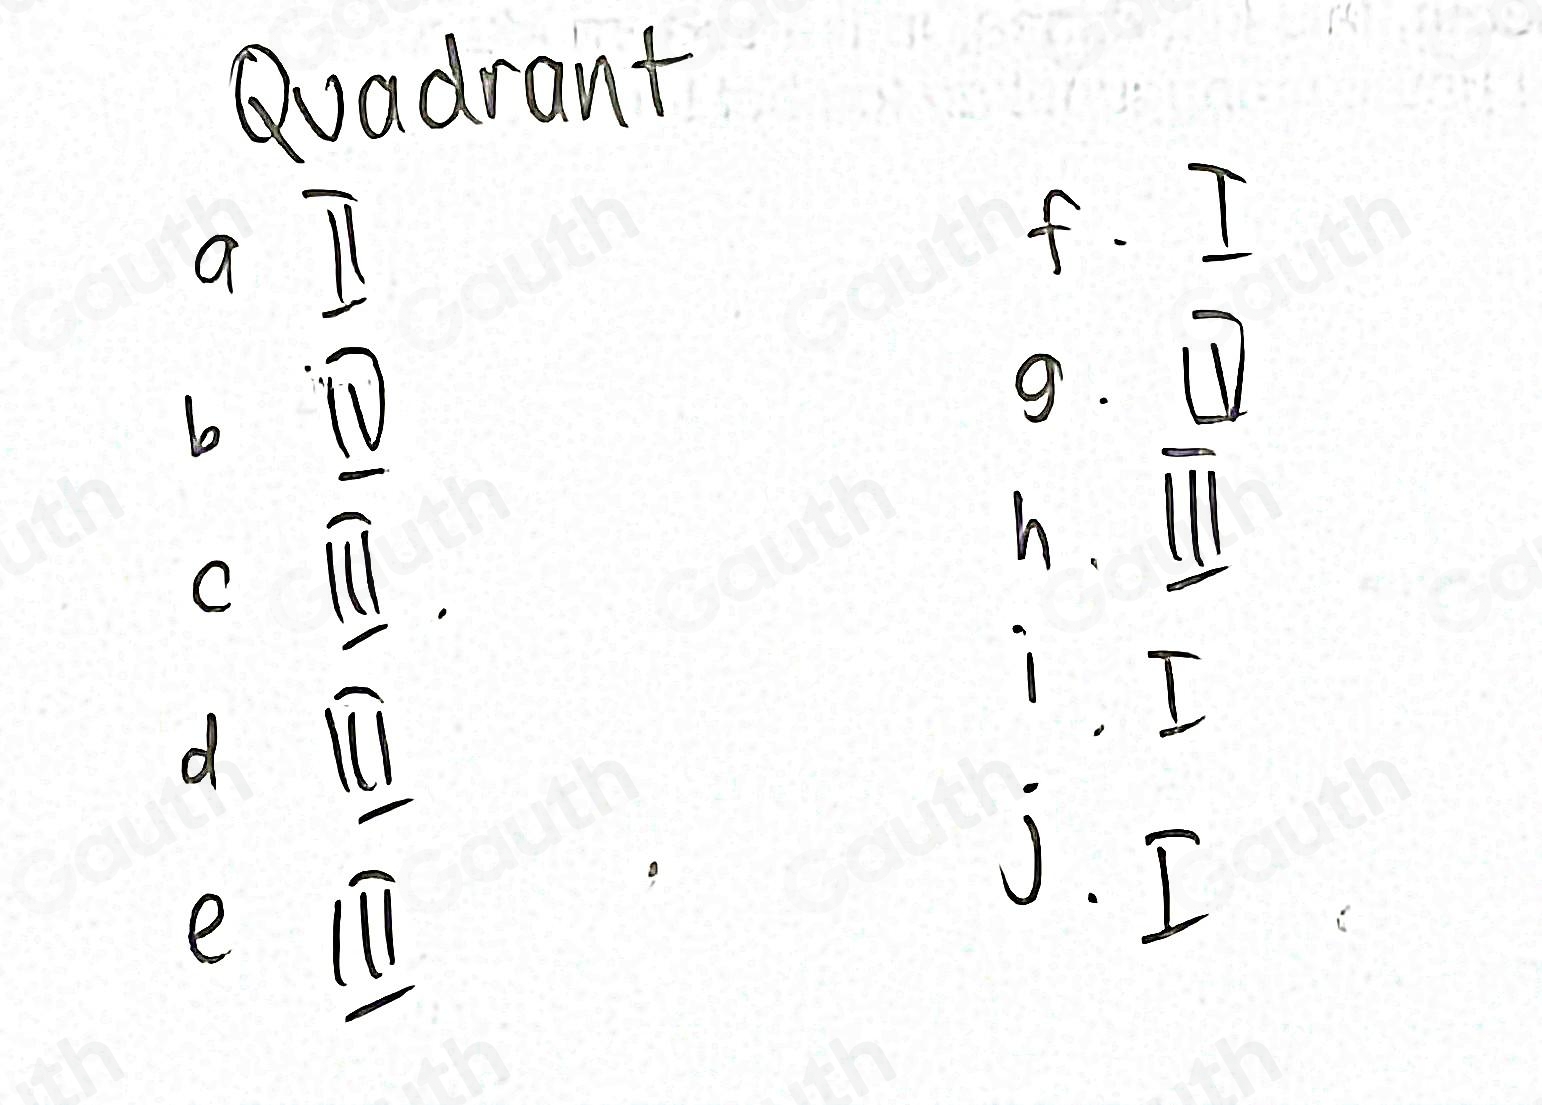 Quadrant
a II
b IV
c III
d III
e III
f. I
g. IV
h. III
i. I
j. I